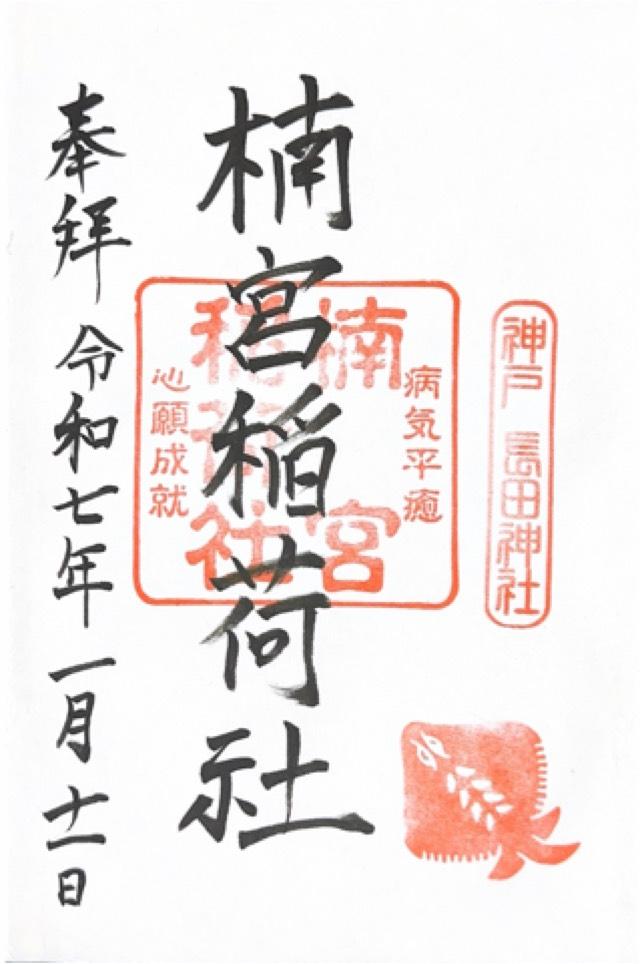 神戸 長田神社
病気平癒
楠宮
稲荷社
心願成就
楠宮稲荷社
奉拝 令和七年一月十一日